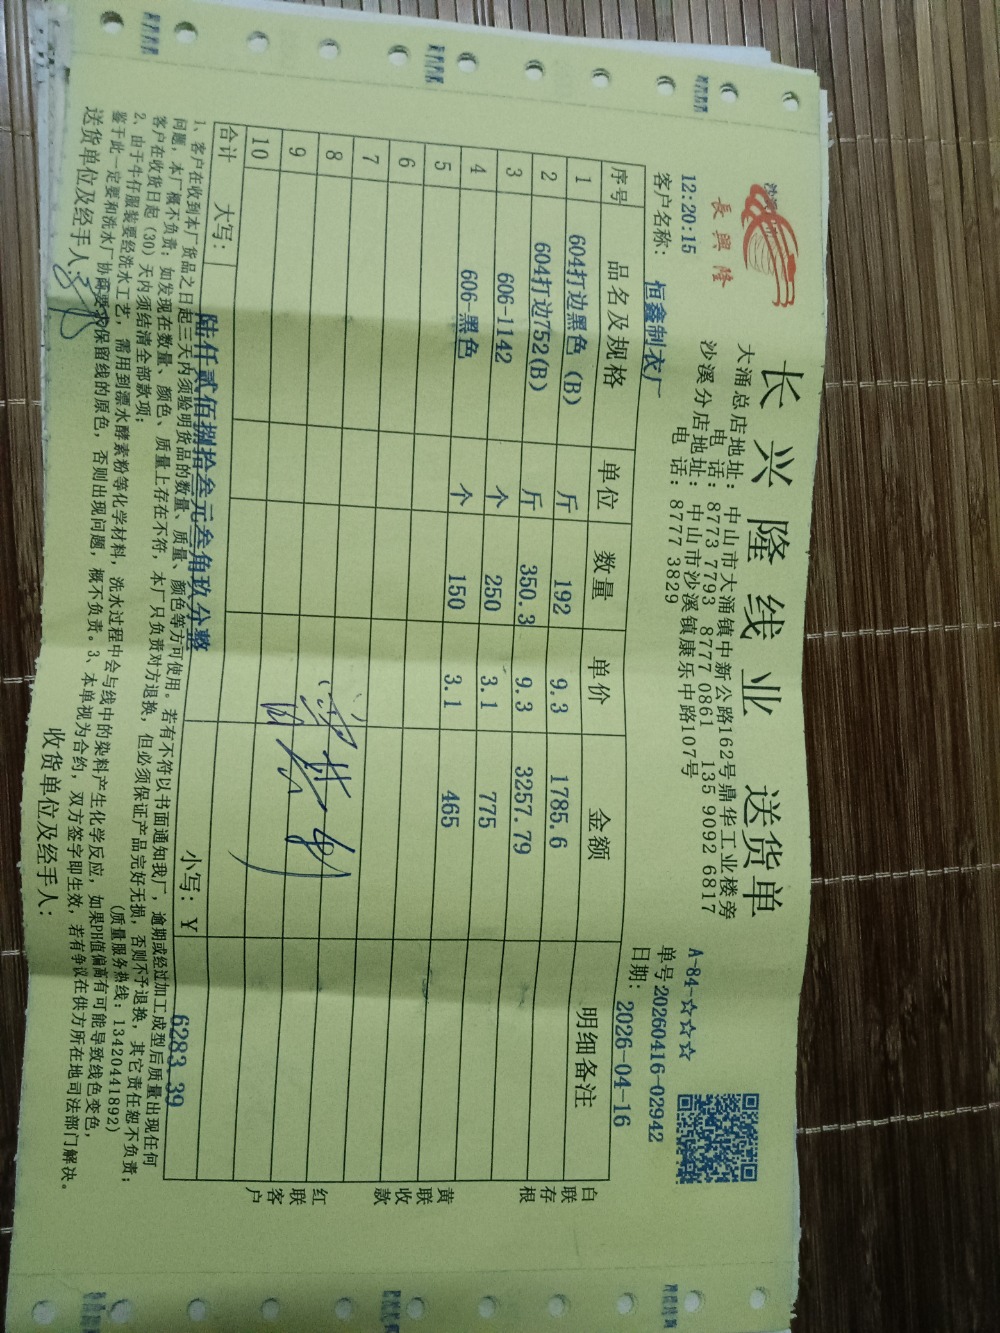 長興隆
长兴隆线业 送货单
大涌总店地址：中山市大涌镇中新公路162号鼎华工业楼旁
电话：8773 7793 8777 0861 135 9092 6817
沙溪分店地址：中山市沙溪镇康乐中路107号
电话：8777 3829
A-84-☆☆☆
12:20:15
单号20260416-02942
客户名称：恒鑫制衣厂
日期：2026-04-16
序号 品名及规格 单位 数量 单价 金额 明细备注
1 604打边黑色（B） 斤 192 9.3 1785.6
2 604打边752(B) 斤 350.3 9.3 3257.79
3 606-1142 个 250 3.1 775
4 606-黑色 个 150 3.1 465
5
6
7
8
9
10
合计 大写：陆仟贰佰捌拾叁元叁角玖分整 小写：￥6283.39
白联存根
黄联收款
红联客户
1、客户在收到本厂货品之日起三天内须验明货品的数量、质量、颜色等方可使用。若有不符以书面通知我厂，逾期或经过加工成型后质量出现任何
问题，本厂概不负责；如发现在数量、颜色、质量上存在不符，本厂只负责对方退换，但必须保证产品完好无损，否则不予退换，其它责任恕不负责；
客户在收货日起（30）天内须结清全部款项； （质量服务热线：13420441892）
2、由于牛仔服装要经洗水工艺，需用到漂水酵素粉等化学材料，洗水过程中会与线中的染料产生化学反应，如果PH值偏高有可能导致线色变色，
鉴于此一定要和洗水厂协商要求保留线的原色，否则出现问题，概不负责。3、本单视为合约，双方签字即生效，若有争议在供方所在地司法部门解决。
送货单位及经手人： 收货单位及经手人：